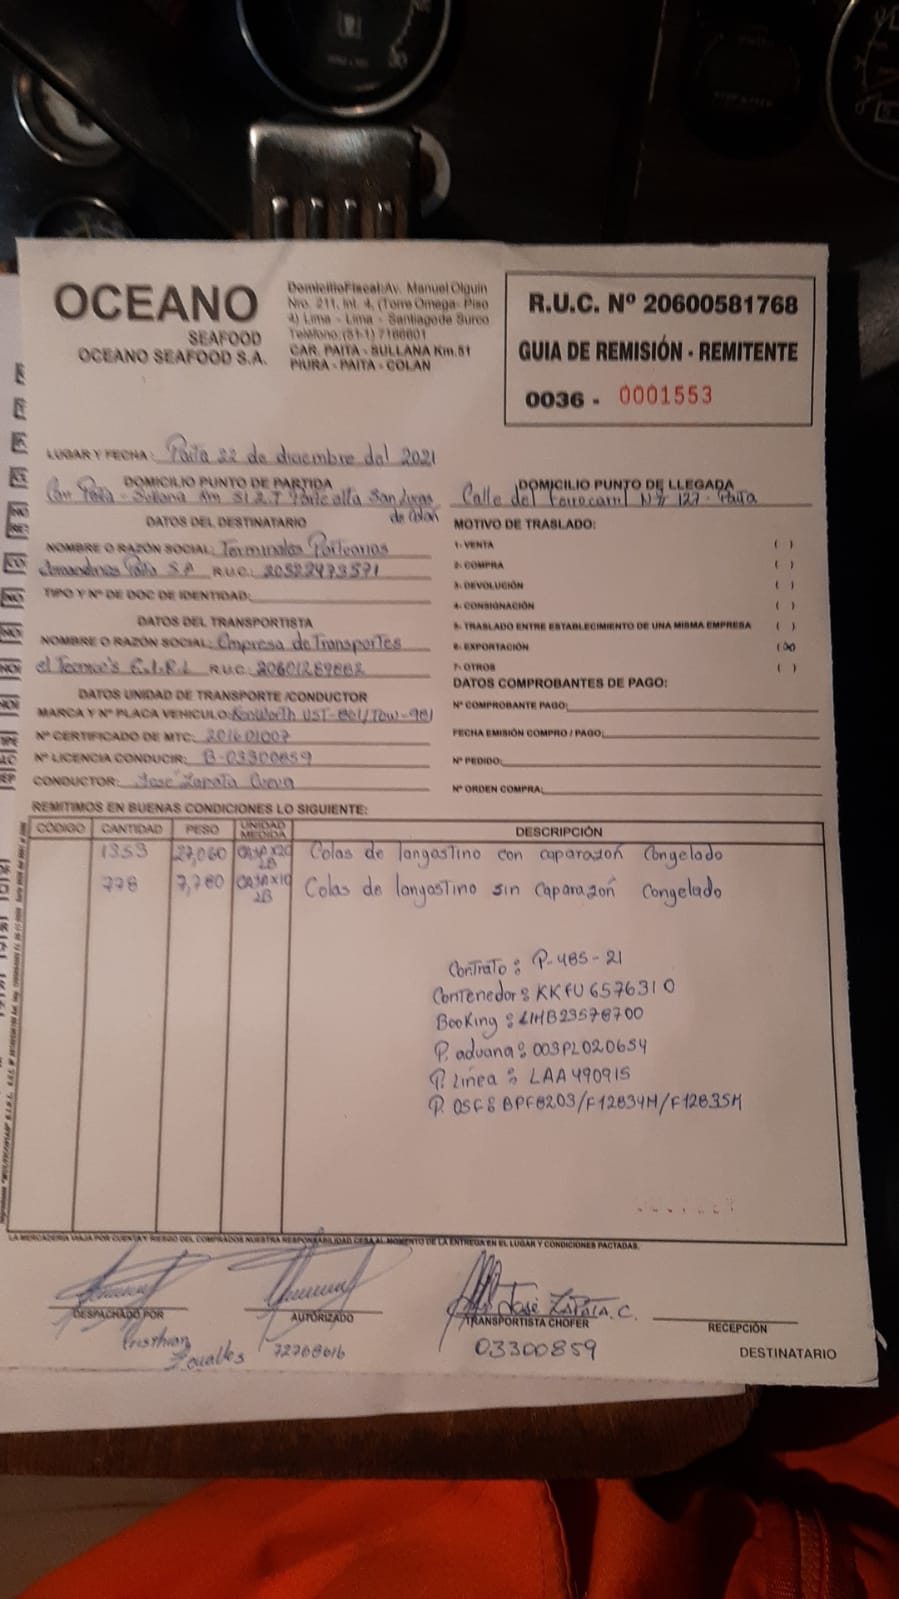 OCEANO
SEAFOOD
OCEANO SEAFOOD S.A.
DomicilioFiscal:Av. Manuel Olguin
Nro. 211, Int. 4, (Torre Omega- Piso
4) Lima - Lima - Santiagode Surco
Teléfono:(51-1) 7166601
CAR. PAITA - SULLANA Km.51
PIURA - PAITA - COLAN
R.U.C. Nº 20600581768
GUIA DE REMISIÓN - REMITENTE
0036 - 0001553
LUGAR Y FECHA: Paita 22 de diciembre del 2021
DOMICILIO PUNTO DE PARTIDA
Paita - Sullana Km 51 Parte alta San Lucas
de Colan
DOMICILIO PUNTO DE LLEGADA
Calle del Ferrocarril Nº 127 - Paita
DATOS DEL DESTINATARIO
NOMBRE O RAZÓN SOCIAL: Terminales Portuarios
Paita S.A R.U.C: 20522473571
TIPO Y Nº DE DOC DE IDENTIDAD:
DATOS DEL TRANSPORTISTA
NOMBRE O RAZÓN SOCIAL: Empresa de Transportes
el Tecnico's E.I.R.L R.U.C: 20601289882
DATOS UNIDAD DE TRANSPORTE /CONDUCTOR
MARCA Y Nº PLACA VEHICULO: Kenworth
Nº CERTIFICADO DE MTC: 201601007
Nº LICENCIA CONDUCIR: B-03300859
CONDUCTOR: Jose Zapata
MOTIVO DE TRASLADO:
1- VENTA ( )
2- COMPRA ( )
3- DEVOLUCIÓN ( )
4- CONSIGNACIÓN ( )
5- TRASLADO ENTRE ESTABLECIMIENTO DE UNA MISMA EMPRESA ( )
6- EXPORTACIÓN (X)
7- OTROS ( )
DATOS COMPROBANTES DE PAGO:
Nº COMPROBANTE PAGO:
FECHA EMISIÓN COMPRO / PAGO:
Nº PEDIDO:
Nº ORDEN COMPRA:
REMITIMOS EN BUENAS CONDICIONES LO SIGUIENTE:
CÓDIGO CANTIDAD PESO UNIDAD MEDIDA DESCRIPCIÓN
1353 27,060 CAJAX20 LB Colas de langostino con caparazón Congelado
778 7,780 CAJAX10 LB Colas de langostino sin caparazón Congelado
Contrato: P-485-21
Contenedor: KKFU6576310
Booking: LIMB23578700
P. aduana: 003PL020654
P. Linea: LAA490915
P. OSF: BPF8203/F12834M/F12835M
LA MERCADERIA VIAJA POR CUENTA Y RIESGO DEL COMPRADOS NUESTRA RESPONSABILIDAD CESA AL MOMENTO DE LA ENTREGA EN EL LUGAR Y CONDICIONES PACTADAS.
DESPACHADO POR
AUTORIZADO
72768616
José ZAPATA C.
TRANSPORTISTA CHOFER
03300859
RECEPCIÓN
DESTINATARIO